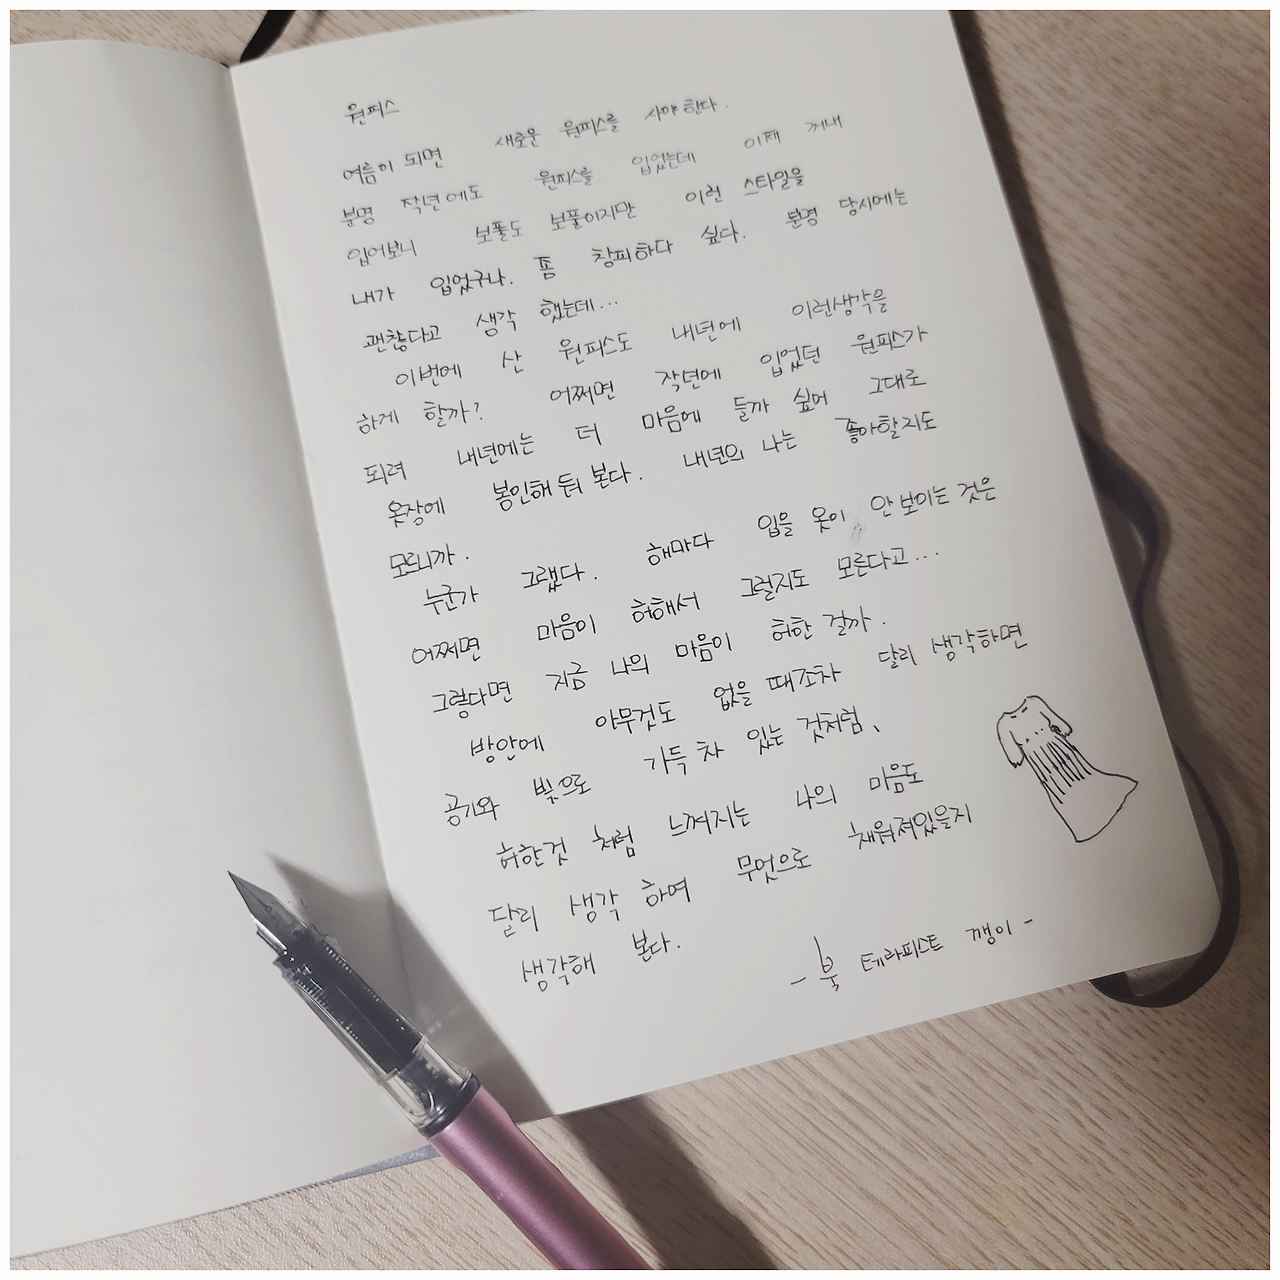 원피스
여름이 되면 새로운 원피스를 사야한다.
분명 작년에도 원피스를 입었는데 이제 꺼내
입어보니 보풀도 보풀이지만 이런 스타일을
내가 입었구나. 좀 창피하다 싶다. 분명 당시에는
괜찮다고 생각 했는데...
이번에 산 원피스도 내년에 이런생각을
하게 할까? 어쩌면 작년에 입었던 원피스가
되려 내년에는 더 마음에 들까 싶어 그대로
옷장에 봉인해 둬 본다. 내년의 나는 좋아할지도
모르니까.
누군가 그랬다. 해마다 입을 옷이 안 보이는 것은
어쩌면 마음이 허해서 그럴지도 모른다고...
그렇다면 지금 나의 마음이 허한 걸까.
방안에 아무것도 없을 때조차 달리 생각하면
공기와 빛으로 가득 차 있는 것처럼,
허한것 처럼 느껴지는 나의 마음도
달리 생각 하여 무엇으로 채워져있을지
생각해 본다.
- 북 테라피스트 깽이 -